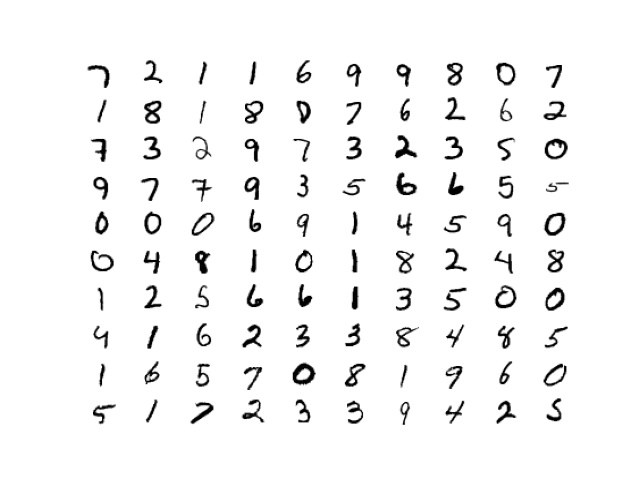 7 2 1 1 6 9 9 8 0 7
1 8 1 8 0 7 6 2 6 2
7 3 2 9 7 3 2 3 5 0
9 7 7 9 3 5 6 6 5 5
0 0 0 6 9 1 4 5 9 0
0 4 8 1 0 1 8 2 4 8
1 2 5 6 6 1 3 5 0 0
4 1 6 2 3 3 8 4 8 5
1 6 5 7 0 8 1 9 6 0
5 1 7 2 3 3 9 4 2 5